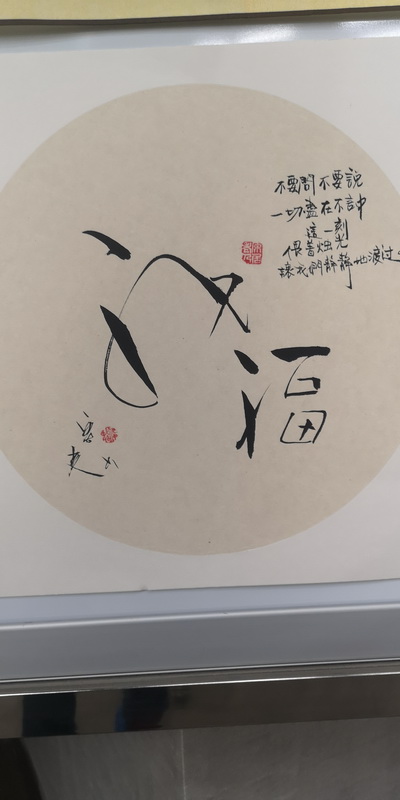 不要問不要說
一切盡在不言中
這一刻
偎著烛光
讓我們靜靜地渡过
祝
福